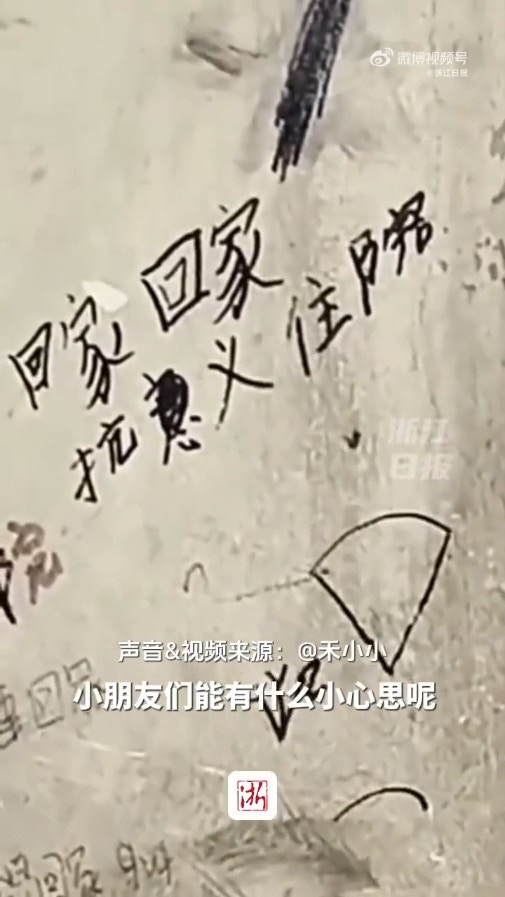 微博视频号
@浙江日报
回家 回家
抗意义住
浙江
日报
声音&视频来源：@禾小小
小朋友们能有什么小心思呢
浙
回家